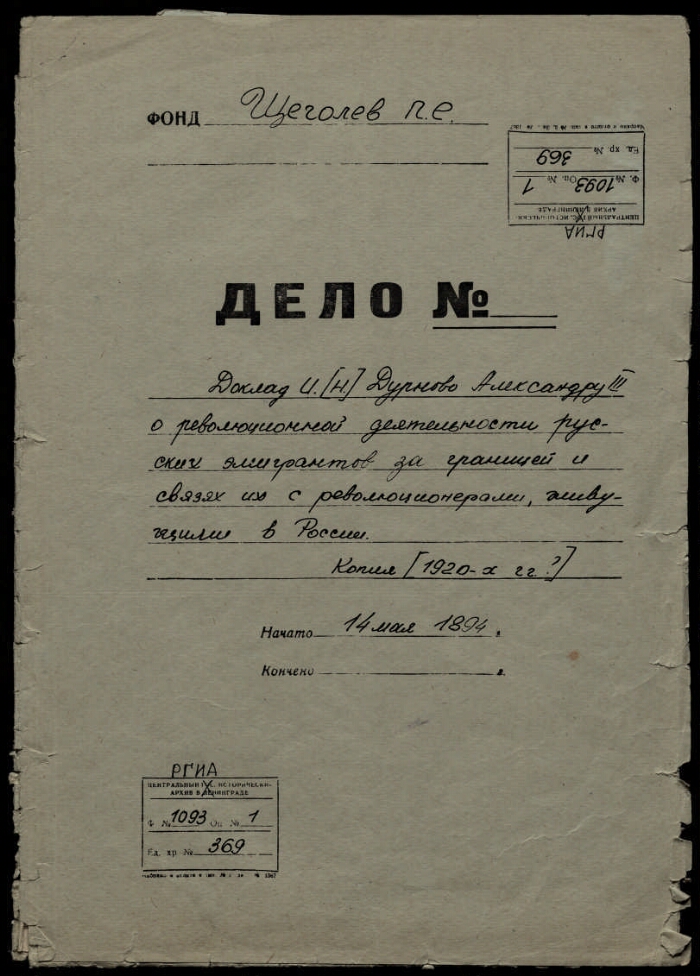 ФОНД Щеголев П.Е.
РГИА
ЦЕНТРАЛЬНЫЙ ГОС. ИСТОРИЧЕСК.
АРХИВ В ЛЕНИНГРАДЕ
Ф. № 1093 Оп. № 1
Ед. хр № 369
ДЕЛО №
Доклад И.[Н] Дурново Александру III
о революционной деятельности рус-
ских эмигрантов за границей и
связях их с революционерами, живу-
щими в России.
Копия [1920-х гг.?]
Начато 14 мая 1894 г.
Кончено г.
РГИА
ЦЕНТРАЛЬНЫЙ ГОС. ИСТОРИЧЕСКИ-
АРХИВ В ЛЕНИНГРАДЕ
Ф № 1093 Оп № 1
Ед. хр № 369